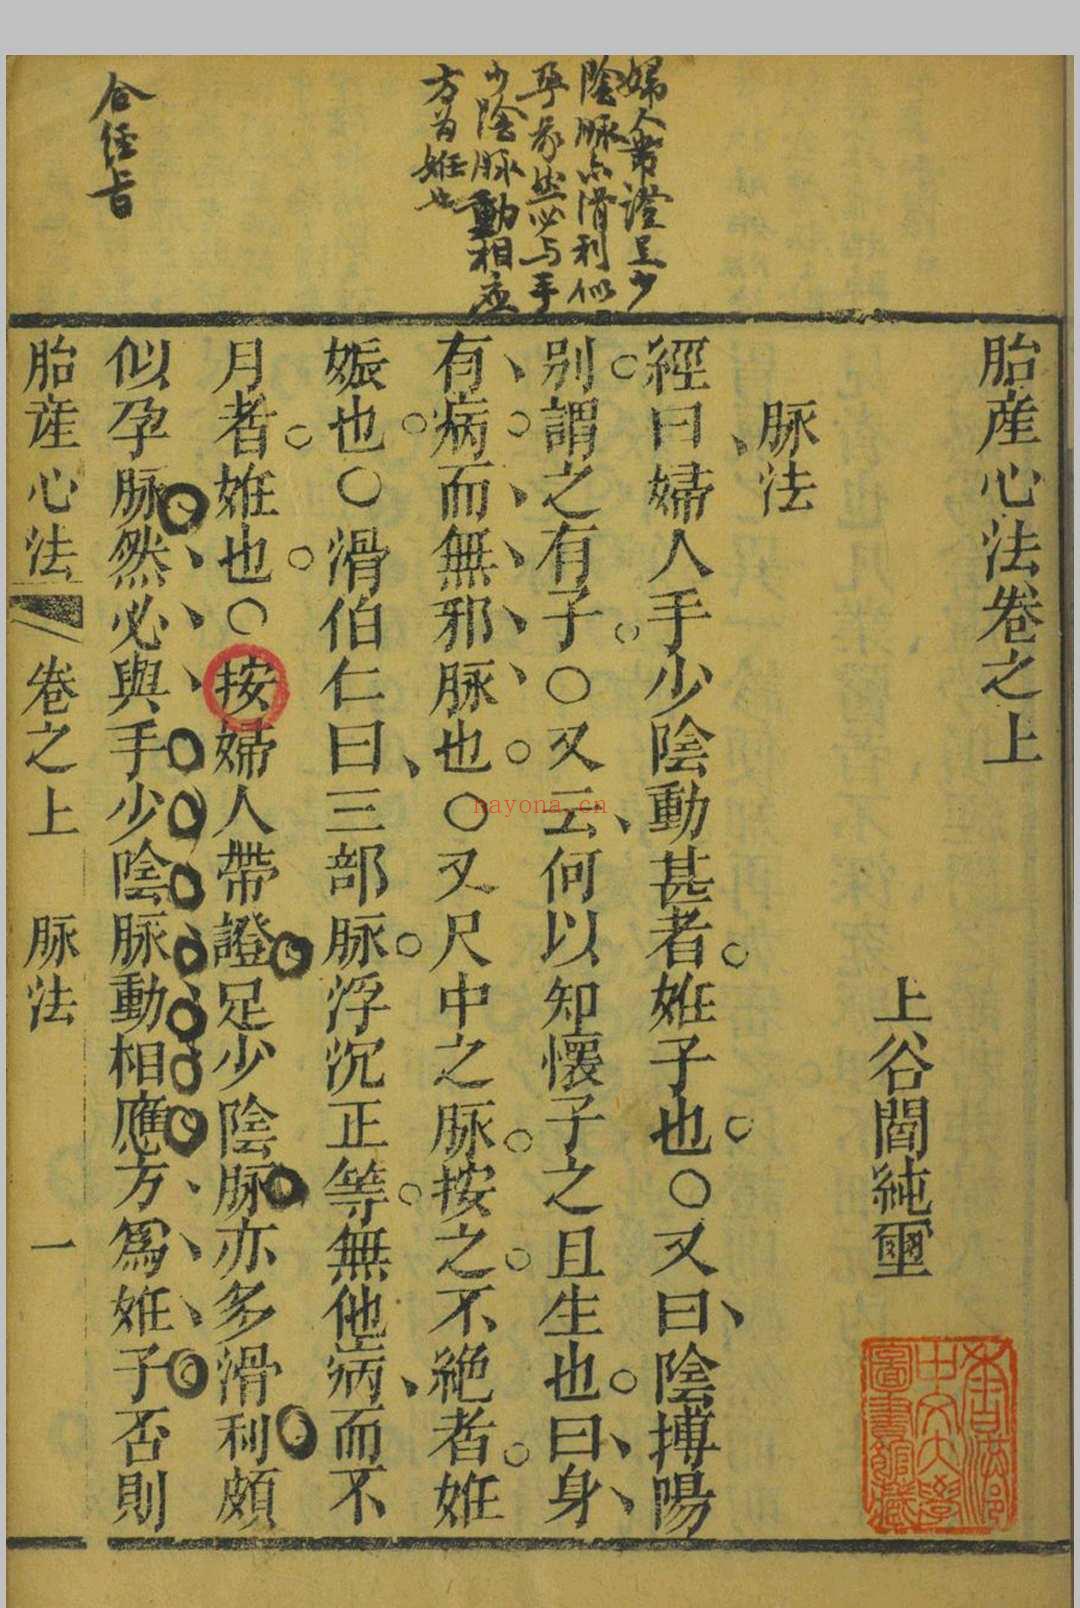 胎産心法卷之上
上谷閻純璽
脉法
經曰婦人手少陰動甚者姙子也〇又曰陰搏陽
别謂之有子〇又云何以知懷子之且生也曰身
有病而無邪脉也〇又尺中之脉按之不絶者姙
娠也〇滑伯仁曰三部脉浮沉正等無他病而不
月者姙也〇按婦人帶證足少陰脉亦多滑利頗
似孕脉然必與手少陰脉動相應方爲姙子否則
胎産心法 卷之上 脉法 一
婦人帶證足少
陰脉亦滑利似
孕象然必与手
少陰脉動相應
方爲姙也
合經旨
香港
中文大學
圖書館藏
nayona.cn